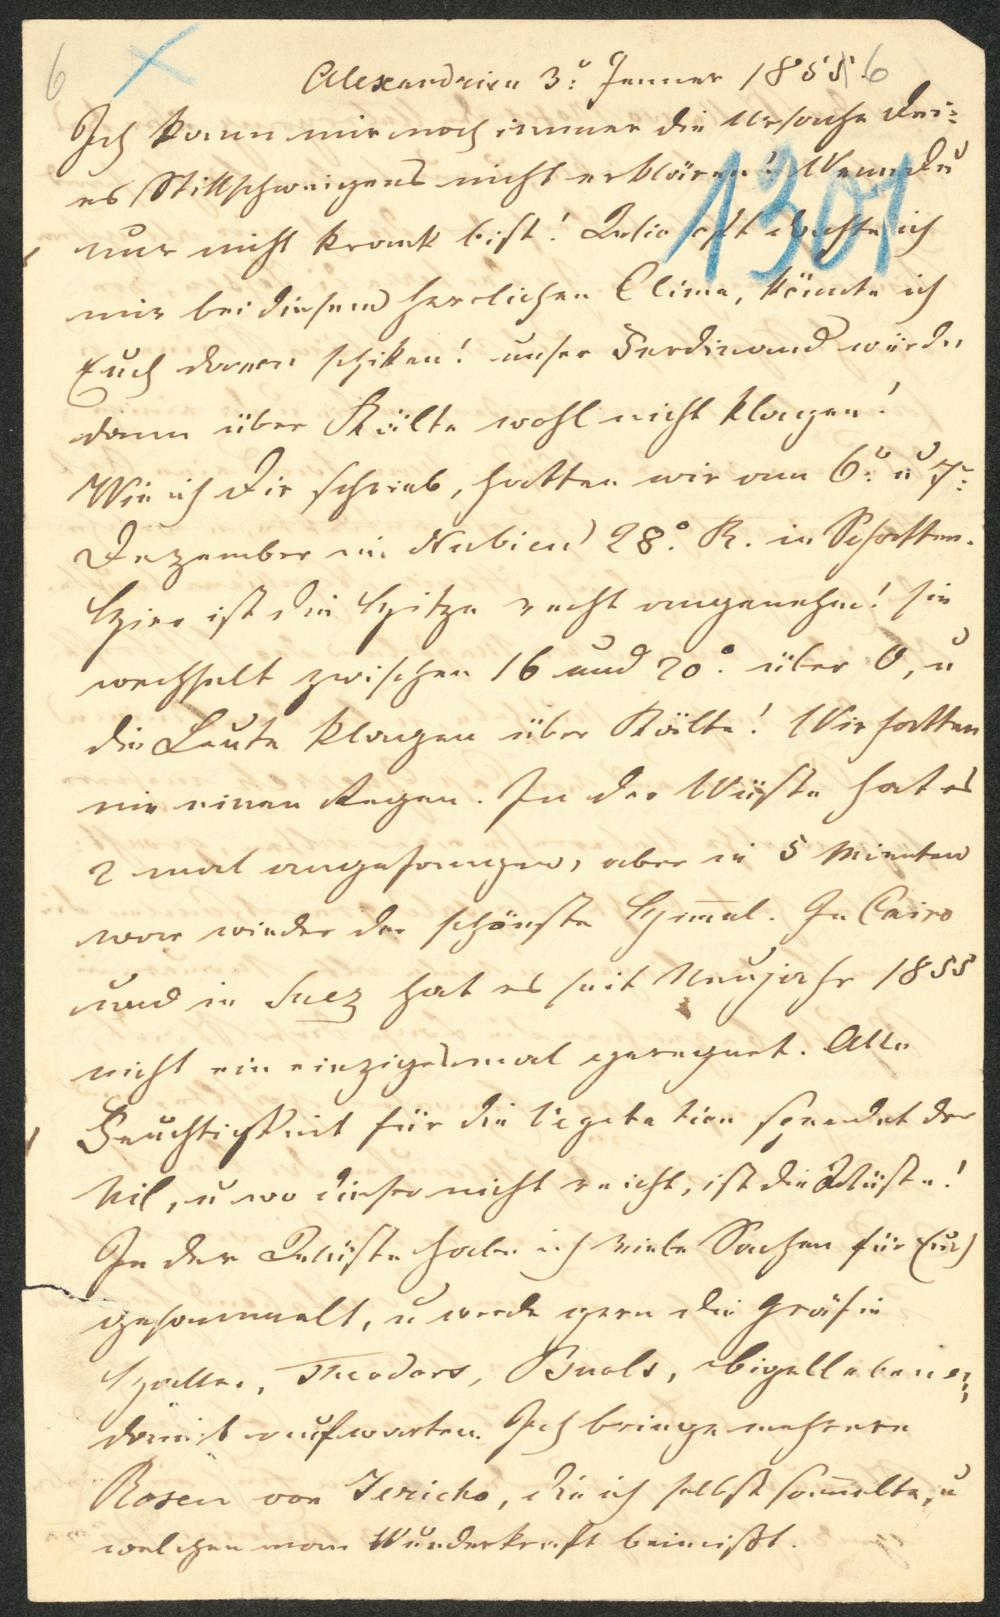 6
Alexandrien 3: Jenner 1855. 6
1301
Ich kann mir noch immer die Ursache Dei-
es Stillschweigens nicht erklären! Wenn du
nur nicht krank bist! Wie oft dachte ich
mir bei diesem herrlichen Clima, könnte ich
Euch davon schiken! unser Ferdinand würde
dann über Kälte wohl nicht klagen!
Wie ich Dir schrieb, hatten wir am 6: u 7:
Dezember in Nubien 28° R. in Schatten.
Hier ist die Hitze recht angenehm! sie
wechselt zwischen 16 und 20° über 0, u
die Leute klagen über Kälte! Wir hatten
nie einen Regen. In der Wüste hat es
2 mal angefangen, aber in 5 Minuten
war wieder der schönste Himel. In Cairo
und in Suez hat es seit Neujahr 1855
nicht ein einzigesmal geregnet. Alle
Feuchtigkeit für die Vegetation spendet der
Nil, u wo dieser nicht reicht, ist die Wüste!
In der Wüste habe ich viele Sachen für Euch
gesammelt, u werde gern die Gräfin
Theodors, Buols,
damit aufwarten. Ich bringe mehrere
Rosen von Jericho, die ich selbst samelte, u
welchen man Wunderkraft beimißt.